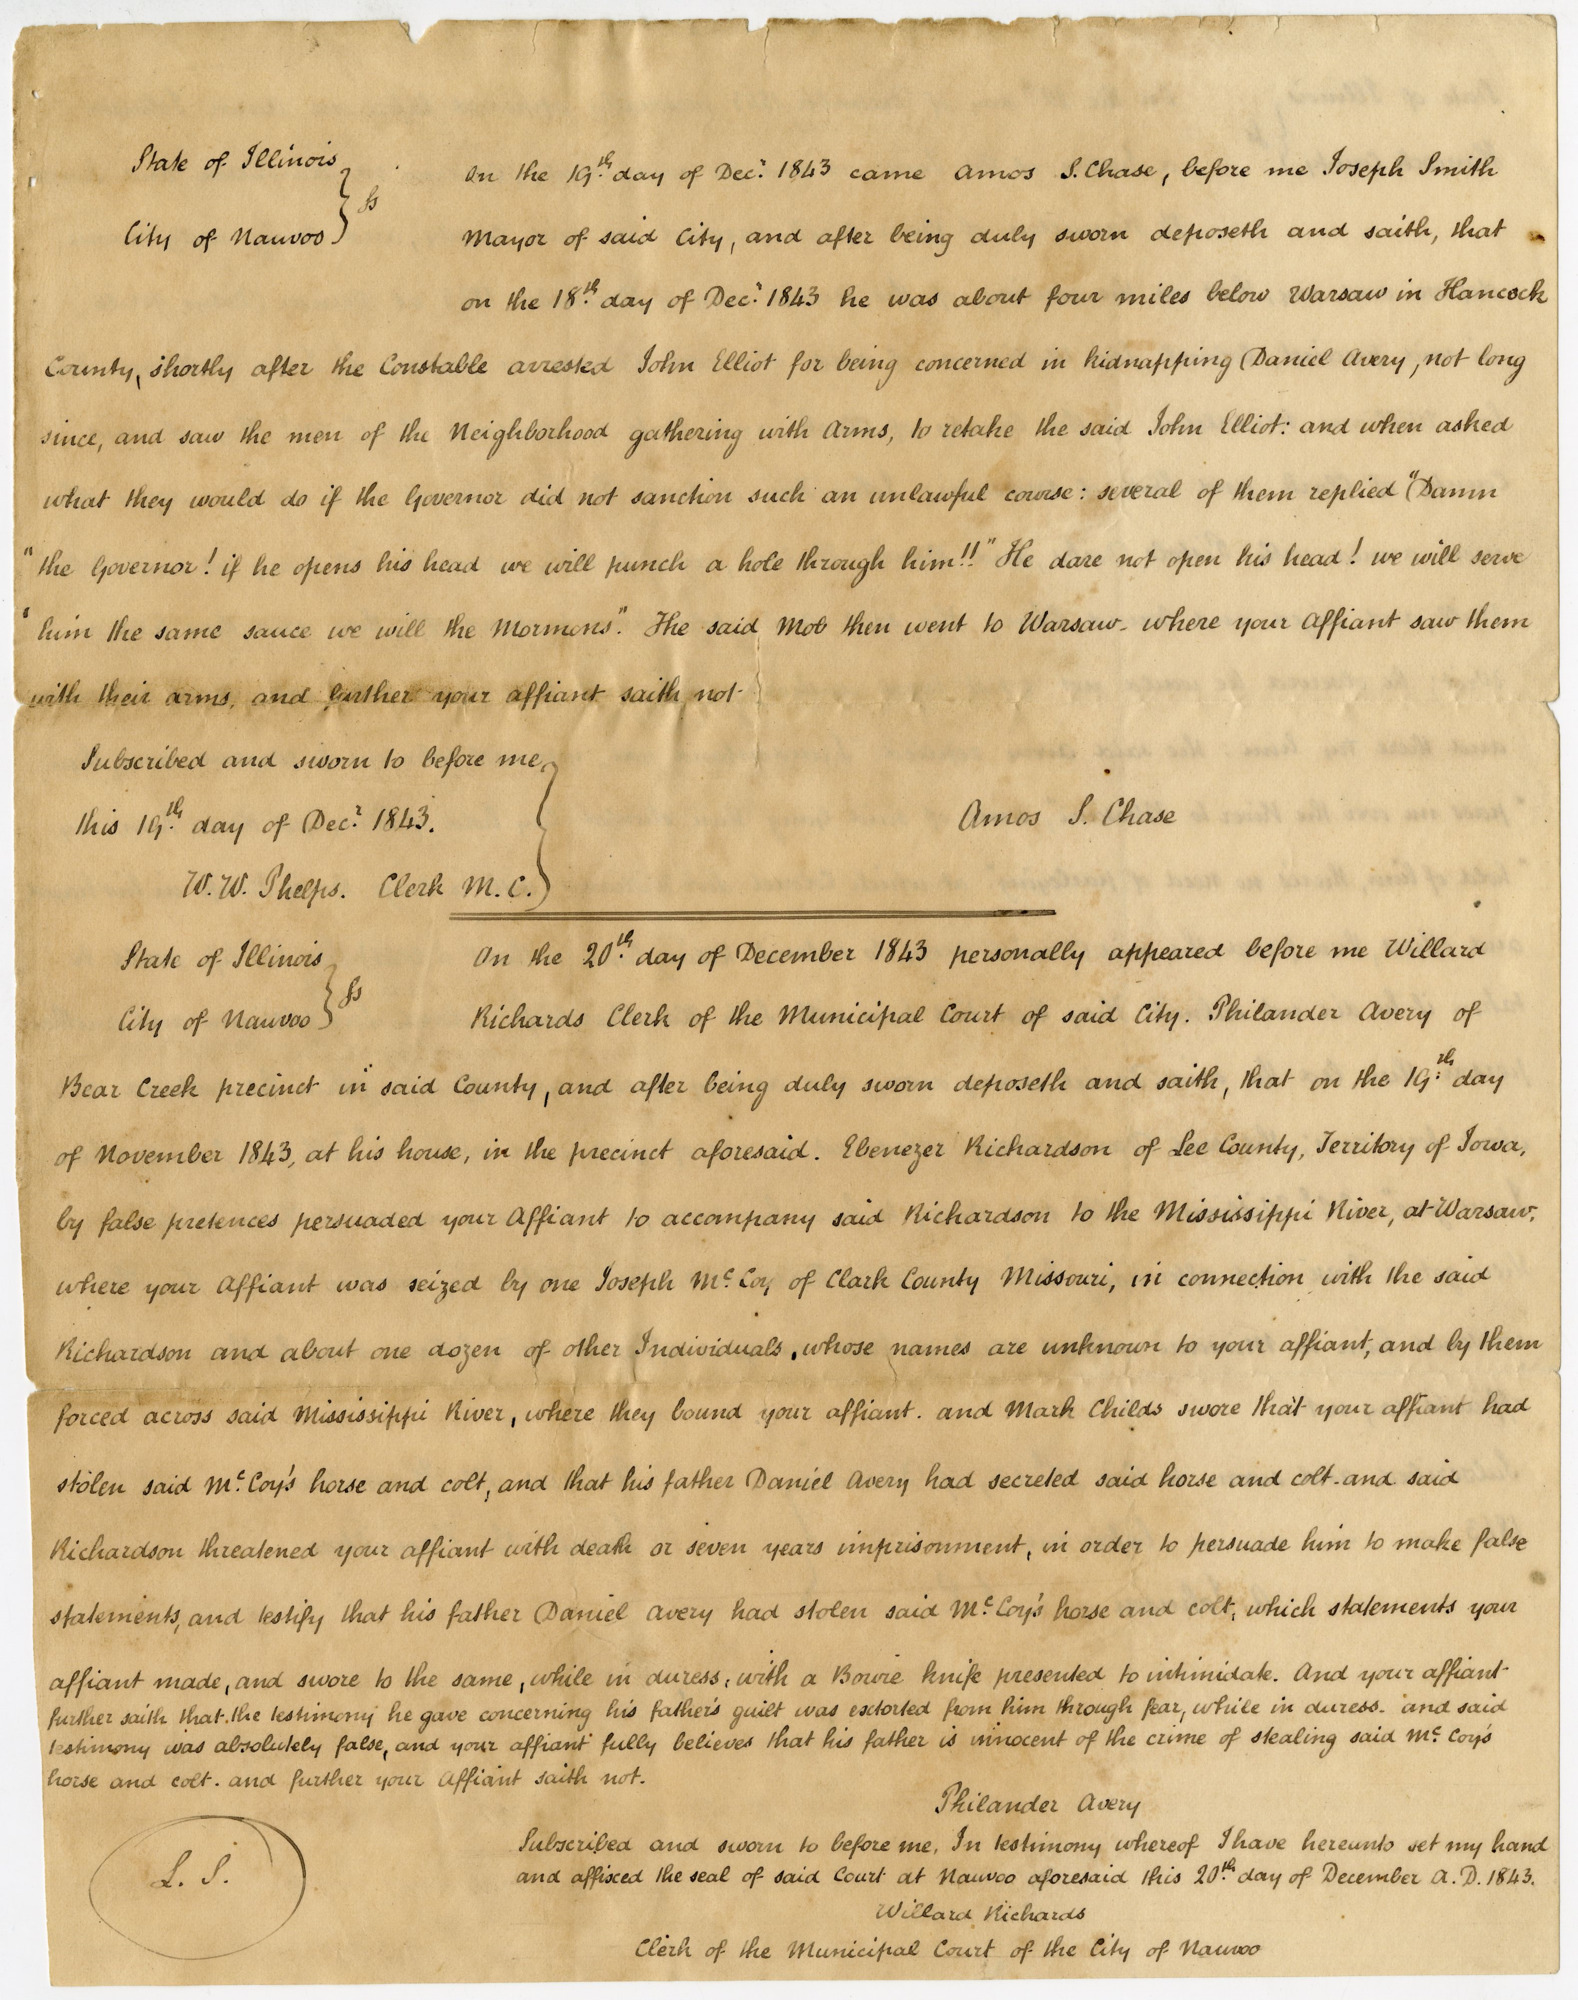 State of Illinois } ss
City of Nauvoo }
On the 19th. day of Decr. 1843 came Amos S. Chase, before me Joseph Smith
Mayor of said City, and after being duly sworn deposeth and saith, that
on the 18th. day of Decr. 1843 he was about four miles below Warsaw in Hancock
County, shortly after the Constable arrested John Elliot for being concerned in kidnapping Daniel Avery, not long
since, and saw the men of the Neighborhood gathering with Arms, to retake the said John Elliot: and when asked
what they would do if the Governor did not sanction such an unlawful course: several of them replied "Damn
"the Governor! if he opens his head we will punch a hole through him!!" "He dare not open his head! we will serve
"him the same sauce we will the Mormons". The said Mob then went to Warsaw- where your Affiant saw them
with their arms, and further your affiant saith not-
Subscribed and sworn to before me
this 19th. day of Decr. 1843.
W. W. Phelps. Clerk M. C. }
Amos S. Chase
State of Illinois } ss
City of Nauvoo }
On the 20th. day of December 1843 personally appeared before me Willard
Richards Clerk of the Municipal Court of said City. Philander Avery of
Bear Creek precinct in said County, and after being duly sworn deposeth and saith, that on the 19th. day
of November 1843, at his house, in the precinct aforesaid. Ebenezer Richardson of Lee County, Territory of Iowa,
by false pretences persuaded your Affiant to accompany said Richardson to the Mississippi River, at Warsaw,
where your Affiant was seized by one Joseph Mc. Coy of Clark County Missouri, in connection with the said
Richardson and about one dozen of other Individuals, whose names are unknown to your affiant, and by them
forced across said Mississippi River, where they bound your affiant. and Mark Childs swore that your affiant had
stolen said Mc. Coy's horse and colt, and that his father Daniel Avery had secreted said horse and colt- and said
Richardson threatened your affiant with death or seven years imprisonment, in order to persuade him to make false
statements, and testify that his father Daniel Avery had stolen said Mc. Coy's horse and colt, which statements your
affiant made, and swore to the same, while in duress, with a Bowie knife presented to intimidate. And your affiant
further saith that the testimony he gave concerning his father's guilt was extorted from him through fear, while in duress- and said
testimony was absolutely false, and your affiant fully believes that his father is innocent of the crime of stealing said Mc. Coy's
horse and colt. and further your Affiant saith not.
Philander Avery
Subscribed and sworn to before me. In testimony whereof I have hereunto set my hand
and affixed the seal of said Court at Nauvoo aforesaid this 20th. day of December A. D. 1843.
L. S.
Willard Richards
Clerk of the Municipal Court of the City of Nauvoo